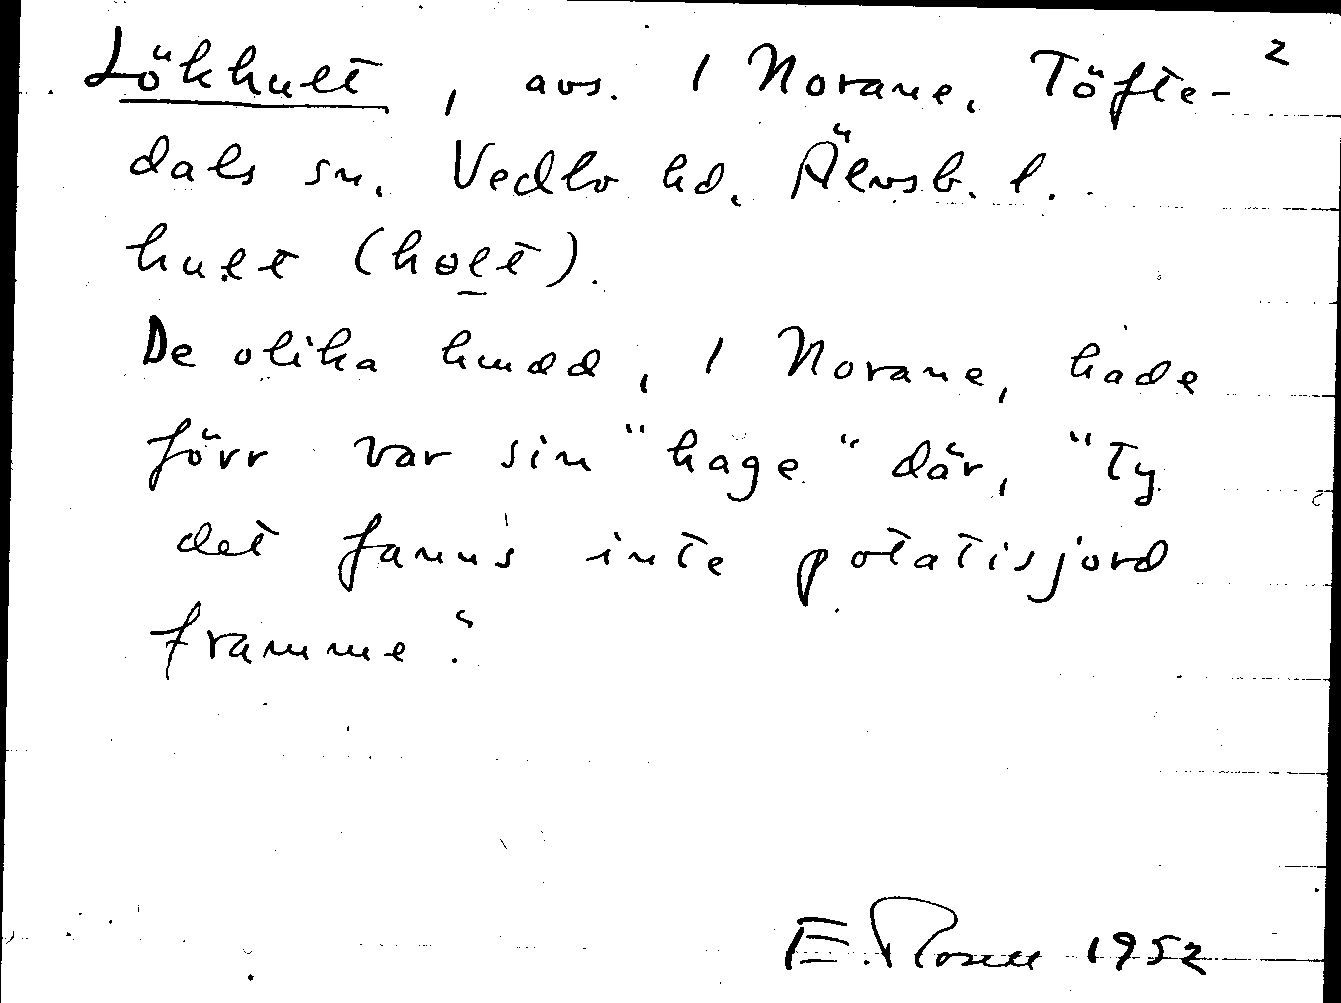 2
Lökhult, avs. / Norane. Töfte-
dals sn. Vedbo hd. Älvsb. l.
hult (holt).
De olika hmdd, / Norane, hade
förr var sin "hage" där, "Ty
det fanns inte potatisjord
framme".
E. Rosell 1952